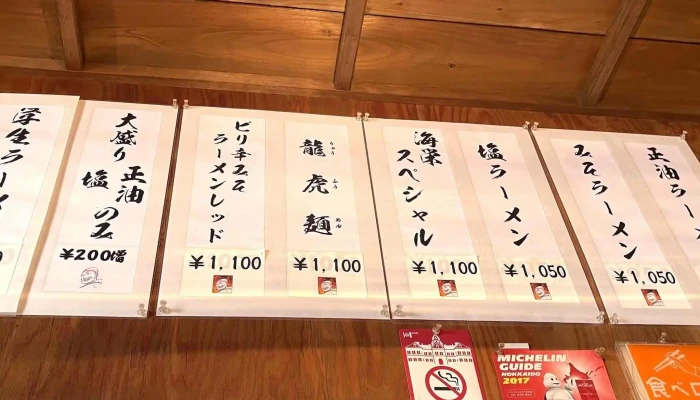 正油ラーメ
みそラーメン
¥1,050
塩ラーメン
¥1,050
海栄
スペシャル
¥1,100
龍虎麺
りゅう
ふう
めん
¥1,100
ピリ辛みそ
ラーメンレッド
¥1,100
大盛り 正油
塩 のみ
¥200増
学生ラーメ
MICHELIN
GUIDE
HOKKAIDO
2017
食べロ